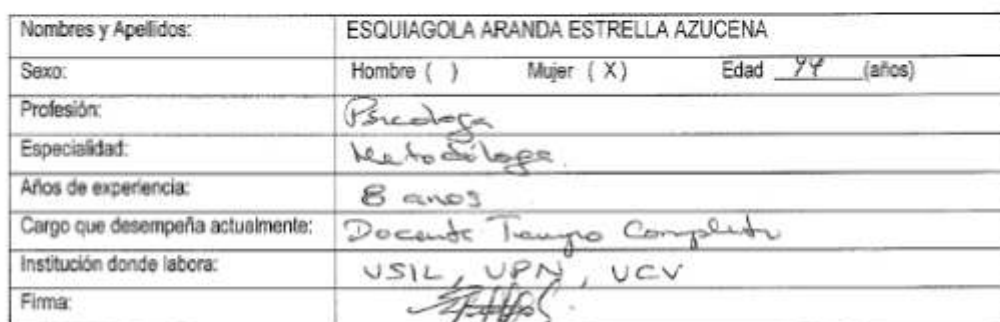 Nombres y Apellidos: ESQUIAGOLA ARANDA ESTRELLA AZUCENA
Sexo: Hombre ( ) Mujer ( X ) Edad 44 (años)
Profesión: Psicologa
Especialidad: Metodóloga
Años de experiencia: 8 anos
Cargo que desempeña actualmente: Docente Tiempo Completo
Institución donde labora: USIL, UPN, UCV
Firma: